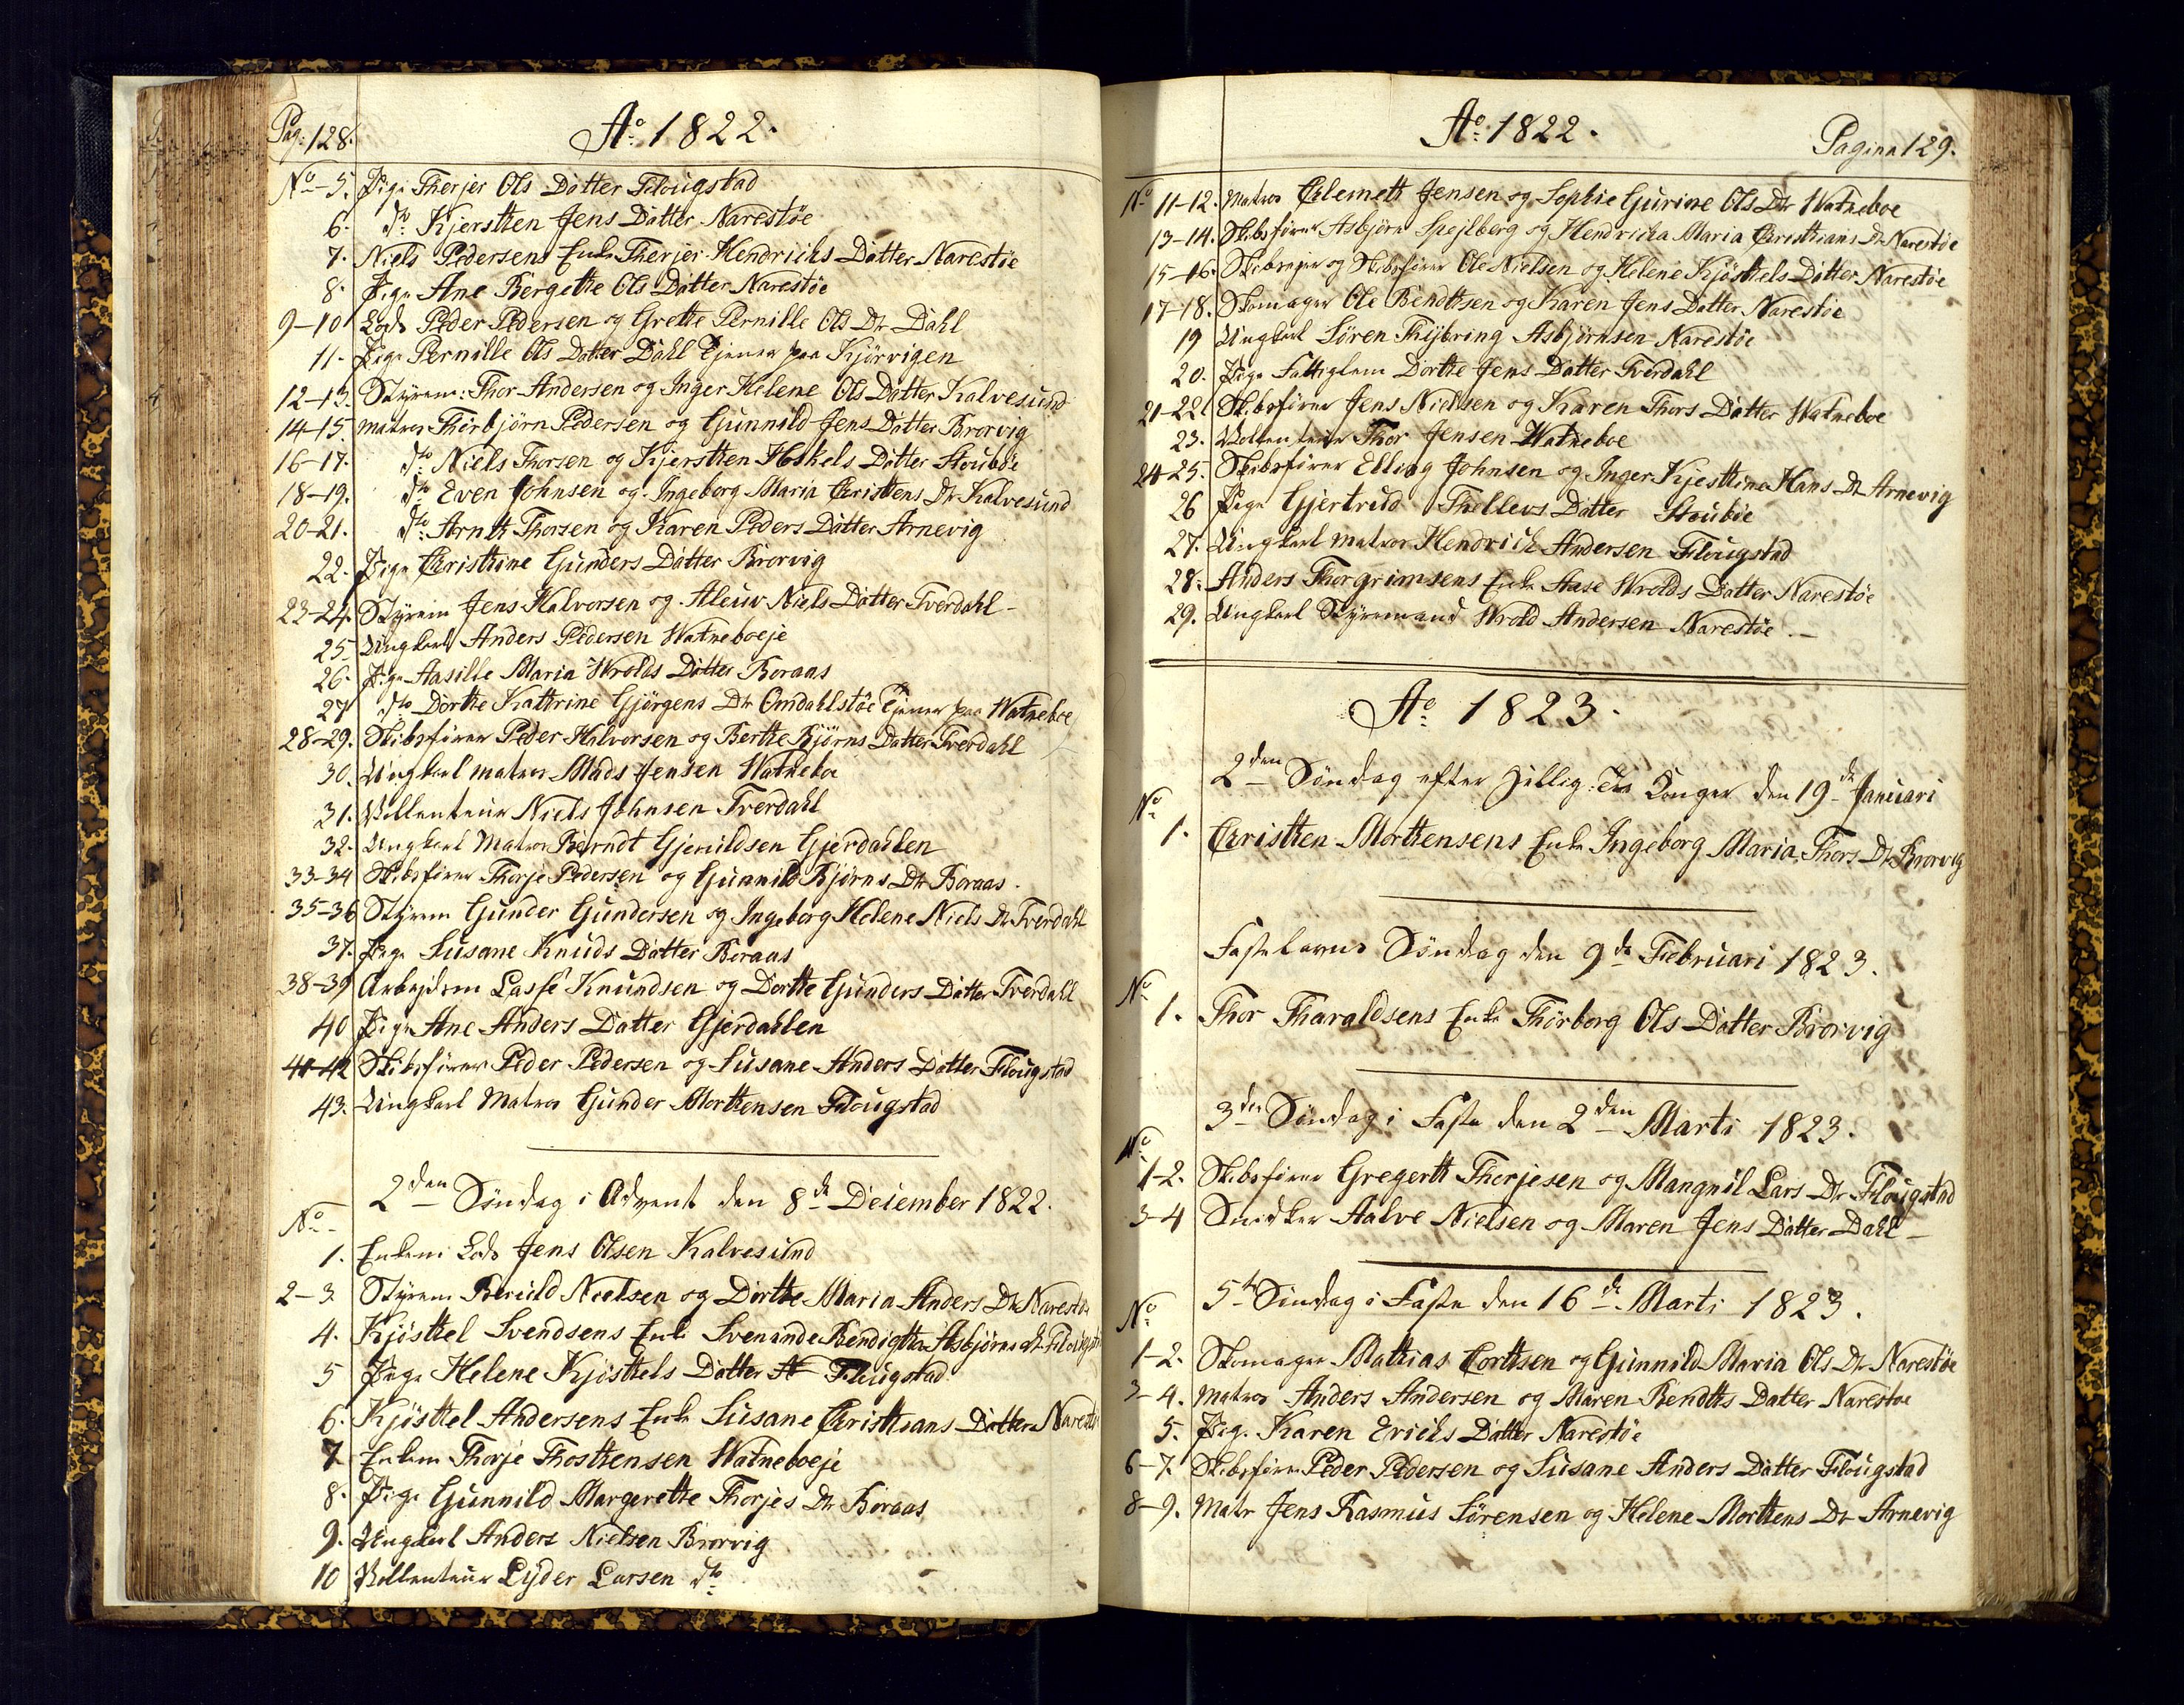 Pag: 128.
Ao. 1822.
No 5. Pige Therjer Ols Datter Flougstad
6. do Kjerstten Jens Datter Narestøe
7. Niels Pedersens Enke Therjer Hendrichs Datter Narestøe
8. Pige Ane Bergette Ols Datter Narestøe
9-10 Lods Peder Pedersen og Grette Pernille Ols Dr Dahl
11. Pige Pernille Ols Datter Dahl tjener paa Kjørvigen
12-13. Styrem: Thor Andersen og Inger Helene Ols Datter Kalvesund
14-15. matros Thorbjørn Pedersen og Gunnild Jens Datter Brorvig
16-17. do Niels Thorsen og Kjerstten Helkels Datter Stoubøe
18-19. do Even Johnsen og Ingeborg Maria Christens Dr Kalvesund
20-21. do Arndt Thorsen og Karen Peders Datter Arnevig
22. Pige Christtine Gunders Datter Brorvig
23-24. Styrem Jens Halvorsen og Aleuv Niels Datter Tverdahl
25 Ungkarl Anders Pedersen Watneboeje
26. Pige Aasille Maria Wrolds Datter Boraas
27 do Dortte Kattrine Gjørgens Dtr Omdahlstøe tjener paa Watneboe
28-29. Skibsfører Peder Halvorsen og Bertte Bjørns Datter Tverdahl
30. Ungkarl matros Mads Jensen Watneboe
31. Vollenteur Niels Johnsen Tverdahl
32. Ungkarl Matros Berndt Gjeruldsen Gjerdahlen
33-34 Skibsfører Thorje Pedersen og Gunnild Bjørns Dtr Boraas.
35-36 Styrem Gunder Gundersen og Ingeborg Helene Niels Dr Tverdahl
37. Pige Susane Knuds Datter Boraas
38-39 Arbejdsm Lasse Knudsen og Dortte Gunders Datter Tverdahl
40 Pige Ane Anders Datter Gjerdahlen
41-42 Skibsfører Peder Pedersen og Susane Anders Datter Flougstad
43. Ungkarl Matros Gunder Morttensen Flougstad
2den Søndag i Advent den 8de December 1822.
No
1. Enkem Lods Jens Olsen Kalvesund
2-3 Styrem Beruld Nielsen og Dortte Maria Anders Dr Narestøe
4. Kjøsttel Svendsens Enke Svenande Bendigtha Asbjørns Dr
5 Pige Helene Kjøsttels Datter Flougstad
6. Kjøsttel Andersens Enke Susane Christtians Datter Narestøe
7 Enkem Thorje Thosttensen Watneboeje
8. Pige Gunnild Margerette Thorjes Dr Boraas
9. Ungkarl Anders Nielsen Brorvig
10 Vollenteur Lyder Larsen do
Ao. 1822.
Pagina 129.
No 11-12. Matros Clemett Jensen og Sophie Gurine Ols Dtr Watneboe
13-14. Skibsfører Asbjørn Spejlberg og Hendricha Maria Christtians Dr Narestøe
15-16. Skibsrejer og Skibsfører Ole Nielsen og Helene Kjøsttels Datter Narestøe
17-18. Skomager Ole Bendtsen og Karen Jens Datter Narestøe
19 Ungkarl Søren Thybring Asbjørnsen Narestøe
20. Pige Fattiglem Dortte Jens Datter Tverdahl
21-22. Skibsfører Jens Nielsen og Karen Thors Datter Watneboe
23. Vollenteur Thor Jensen Watneboe
24-25. Skibsfører Elling Johnsen og Inger Kjesttine Hans Dr Arnevig
26 Pige Gjertrud Thellevs Datter Stoubøe
27. Ungkarl matros Hendrich Andersen Flougstad
28. Anders Thorgrimsens Enke Aase Wrolds Datter Narestøe
29. Ungkarl Styremand Wrold Andersen Narestøe
Ao 1823.
2den Søndag efter Hellig 3 Konger den 19de Januari
No
1. Christten Morttensens Enke Ingeborg Maria Thors Dr Brorvig
Fastelavns Søndag den 9de Februari 1823.
No
1. Thor Tharaldsens Enke Thorborg Ols Datter Brorvig
3den Søndag i Faste den 2den Marti 1823.
No
1-2. Skibsfører Gregertt Therjesen og Mangnil Lars Dr Flougstad
3-4 Snidker Aalve Nielsen og Maren Jens Datter Dahl
5te Søndag i Faste den 16de Marti 1823.
No
1-2. Skomager Mathias Corttsen og Gunnild Maria Ols Dr Narestøe
3-4. matros Anders Andersen og Maren Bendtts Datter Narestøe
5. Pige Karen Erichs Datter Narestøe
6-7. Skibsfører Peder Pedersen og Susane Anders Datter Flougstad
8-9. Matr Jens Rasmus Sørensen og Helene Morttens Dr Arnevig